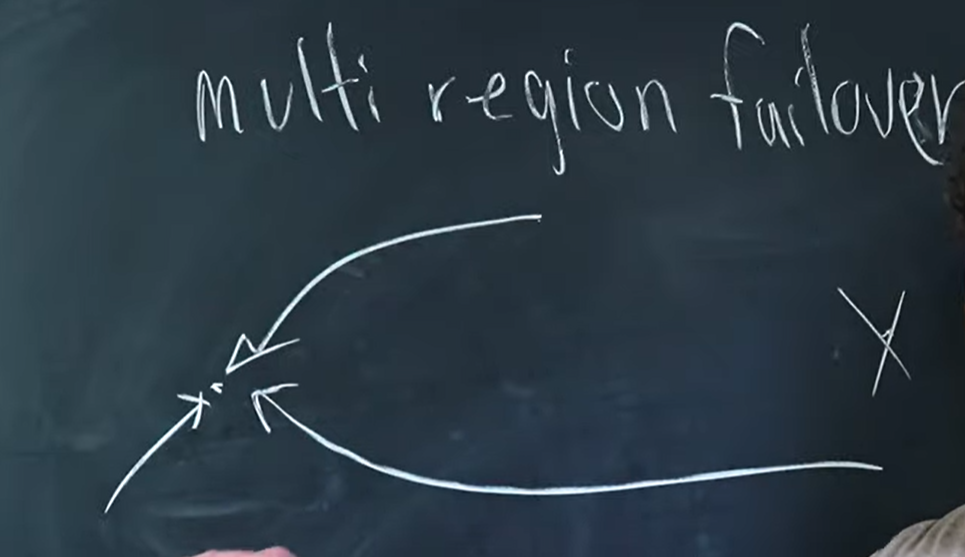 multi region failover
X